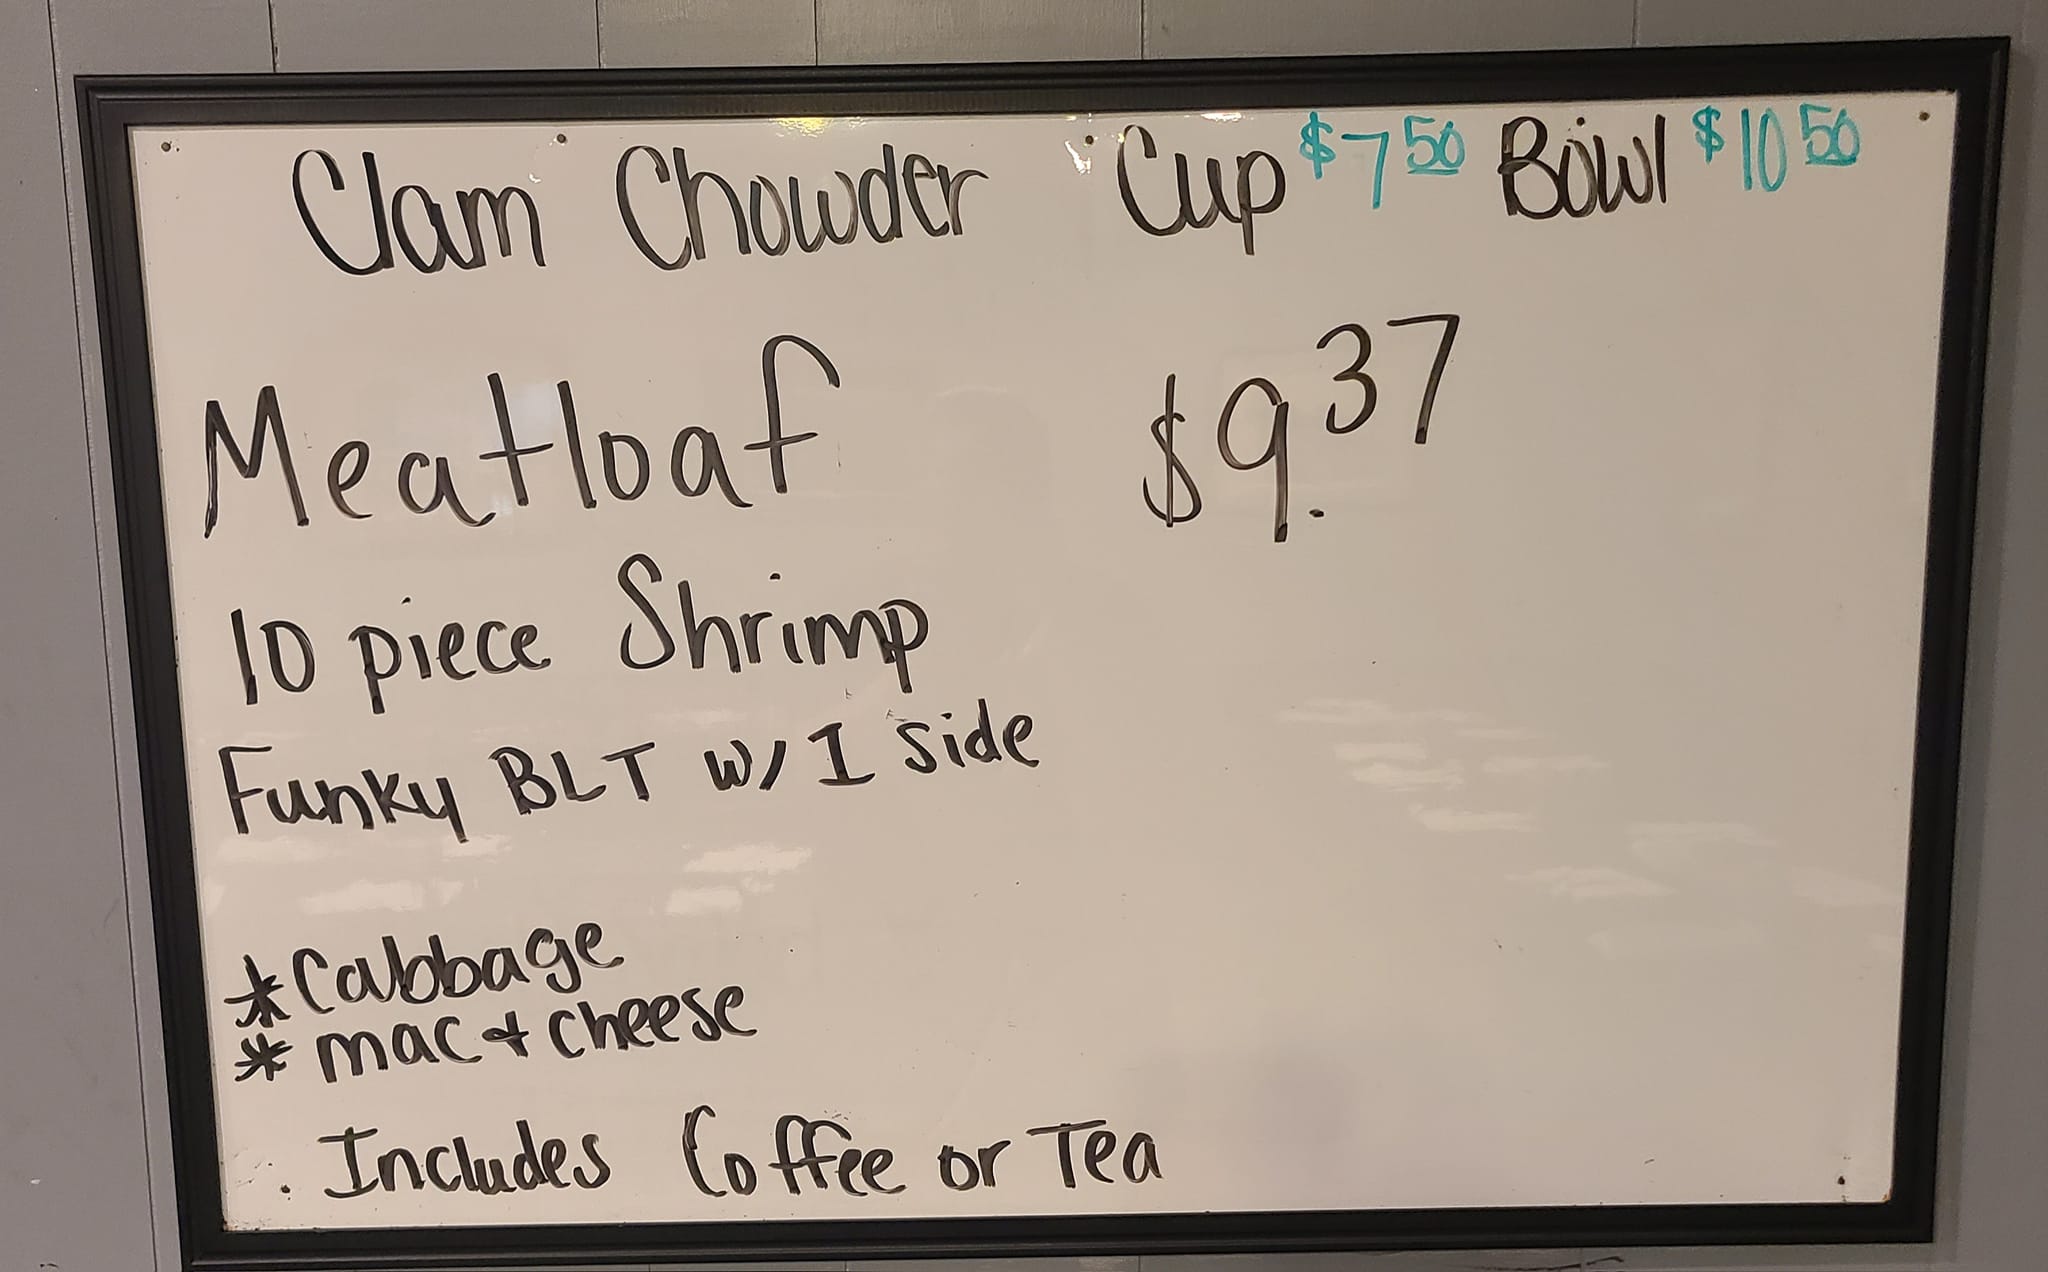 Clam Chowder Cup $7 50 Bowl $10 50
Meatloaf $9.37
10 piece Shrimp
Funky BLT w/ 1 side
*Cabbage
* mac + cheese
. Includes Coffee or Tea